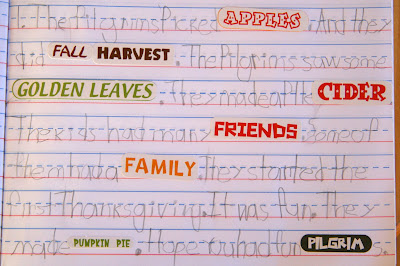 1. The Pilgrims Picked APPLES. And they
did FALL HARVEST. The Pilgrims saw some
GOLDEN LEAVES. They made a CIDER.
The kids had many FRIENDS. Some of
them had a FAMILY. They started the
first Thanksgiving. It was fun. They
made PUMPKIN PIE. I hope you had fun PILGRIM s.